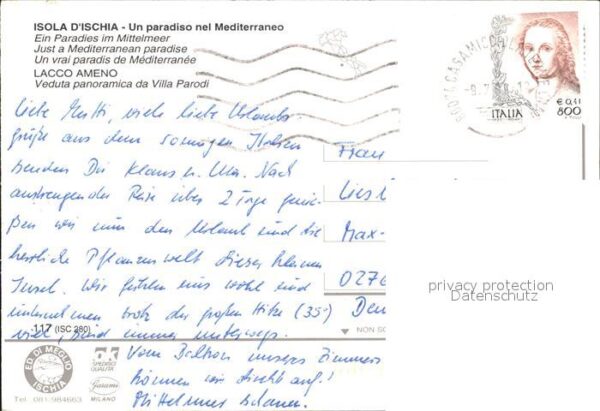 ISOLA D'ISCHIA - Un paradiso nel Mediterraneo
Ein Paradies im Mittelmeer
Just a Mediterranean paradise
Un vrai paradis de Méditerranée
LACCO AMENO
Veduta panoramica da Villa Parodi
Liebe Mutti, viele liebe Urlaubs-
grüße aus dem sonnigen Italien
senden Dir Klaus u. Nach
anstrengender Reise über 2 Tage genie-
ßen wir nun den Urlaub und die
herrliche Pflanzenwelt dieser kleinen
Insel. Wir fühlen uns wohl und
unternehmen trotz der großen Hitze (35°)
viel, sind immer unterwegs.
Vom Balkon unseres Zimmers
können wir direkt auf's
Mittelmeer schauen.
Frau
Max-
0276
117 (ISC 280)
ED. DI MEGLIO
ISCHIA
Tel. 081/984663
OK
SPEDISCI
QUALITÀ
Garami
MILANO
CASAMICCIOLA
ITALIA
€ 0,41
800
privacy protection
Datenschutz